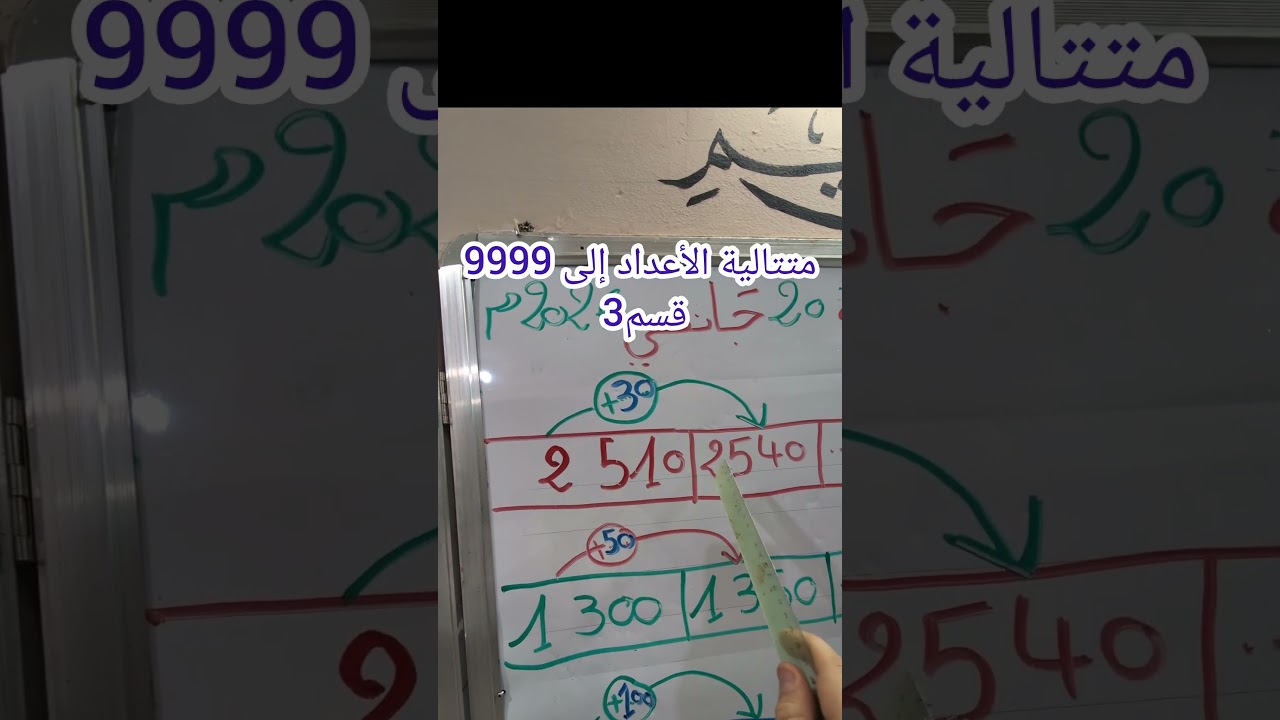 متتالية الأعداد إلى 9999
قسم3
20 جانفي
+30
2 510 2540 ..
+50
1 300 1350
+100